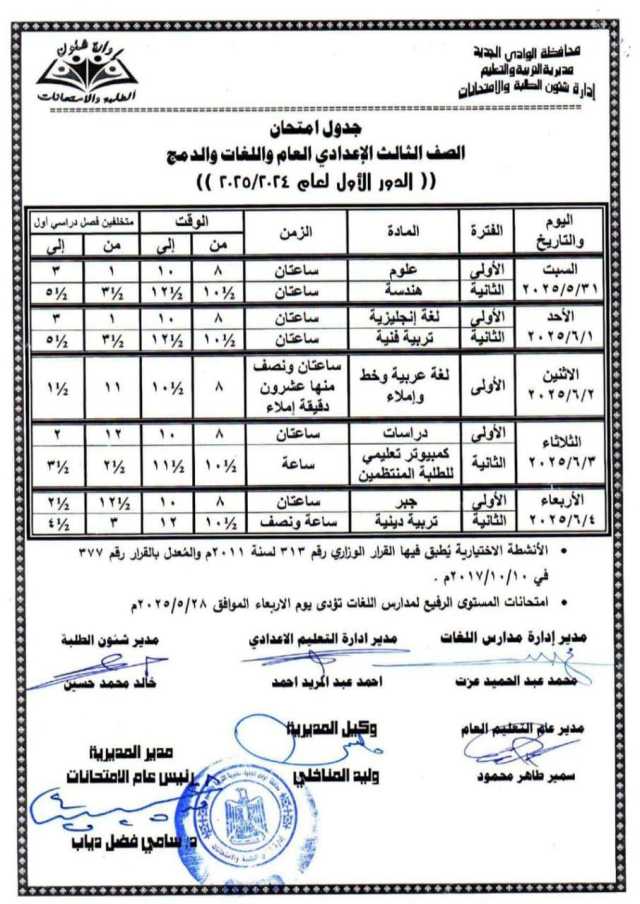 محافظة الوادي الجديد
مديرية التربية والتعليم
إدارة شئون الطلبة والامتحانات
وزارة شئون
الطلبة والامتحانات
جدول امتحان
الصف الثالث الإعدادي العام واللغات والدمج
(( الدور الأول لعام ٢٠٢٥/٢٠٢٤ ))
اليوم والتاريخ | الفترة | المادة | الزمن | الوقت | متخلفين فصل دراسي أول
من | إلى | من | إلى
السبت ٢٠٢٥/٥/٣١ | الأولى | علوم | ساعتان | ٨ | ١٠ | ١ | ٣
الثانية | هندسة | ساعتان | ١٠½ | ١٢½ | ٣½ | ٥½
الأحد ٢٠٢٥/٦/١ | الأولى | لغة إنجليزية | ساعتان | ٨ | ١٠ | ١ | ٣
الثانية | تربية فنية | ساعتان | ١٠½ | ١٢½ | ٣½ | ٥½
الاثنين ٢٠٢٥/٦/٢ | الأولى | لغة عربية وخط وإملاء | ساعتان ونصف منها عشرون دقيقة إملاء | ٨ | ١٠½ | ١١ | ١½
الثلاثاء ٢٠٢٥/٦/٣ | الأولى | دراسات | ساعتان | ٨ | ١٠ | ١٢ | ٢
الثانية | كمبيوتر تعليمي للطلبة المنتظمين | ساعة | ١٠½ | ١١½ | ٢½ | ٣½
الأربعاء ٢٠٢٥/٦/٤ | الأولى | جبر | ساعتان | ٨ | ١٠ | ١٢½ | ٢½
الثانية | تربية دينية | ساعة ونصف | ١٠½ | ١٢ | ٣ | ٤½
• الأنشطة الاختيارية يُطبق فيها القرار الوزاري رقم ٣١٣ لسنة ٢٠١١م والمُعدل بالقرار رقم ٣٧٧
في ٢٠١٧/١٠/١٠م .
• امتحانات المستوى الرفيع لمدارس اللغات تؤدى يوم الاربعاء الموافق ٢٠٢٥/٥/٢٨م
مدير إدارة مدارس اللغات
محمد عبد الحميد عزت
مدير ادارة التعليم الاعدادي
احمد عبد المريد احمد
مدير شئون الطلبة
خالد محمد حسين
مدير عام التعليم العام
سمير طاهر محمود
وكيل المديرية
وليد المناخلي
مدير المديرية
رئيس عام الامتحانات
د. سامي فضل دياب